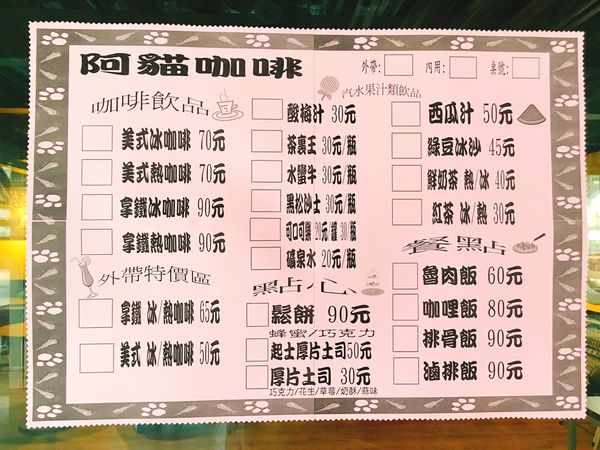 阿貓咖啡
外帶: 內用: 桌號:
咖啡飲品
美式冰咖啡 70元
美式熱咖啡 70元
拿鐵冰咖啡 90元
拿鐵熱咖啡 90元
外帶特價區
拿鐵 冰/熱咖啡 65元
美式 冰/熱咖啡 50元
汽水果汁類飲品
酸梅汁 30元
茶裏王 30元/瓶
水蠻牛 30元/瓶
黑松沙士 30元/瓶
可口可樂 20元/罐 30/瓶
礦泉水 20元/瓶
點心
鬆餅 90元
蜂蜜/巧克力
起士厚片土司50元
厚片土司 30元
巧克力/花生/草莓/奶酥/蒜味
西瓜汁 50元
綠豆冰沙 45元
鮮奶茶 熱/冰 40元
紅茶 冰/熱 30元
餐點
魯肉飯 60元
咖哩飯 80元
排骨飯 90元
滷排飯 90元